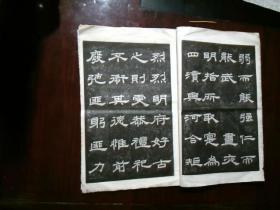 弱而能強仁而
能武晝夜
明哲所取寔為
四瀆與河合矩
烈烈明府好古
之則虔恭禮祀
不愆其德惟前
廢弛匪躬匪力